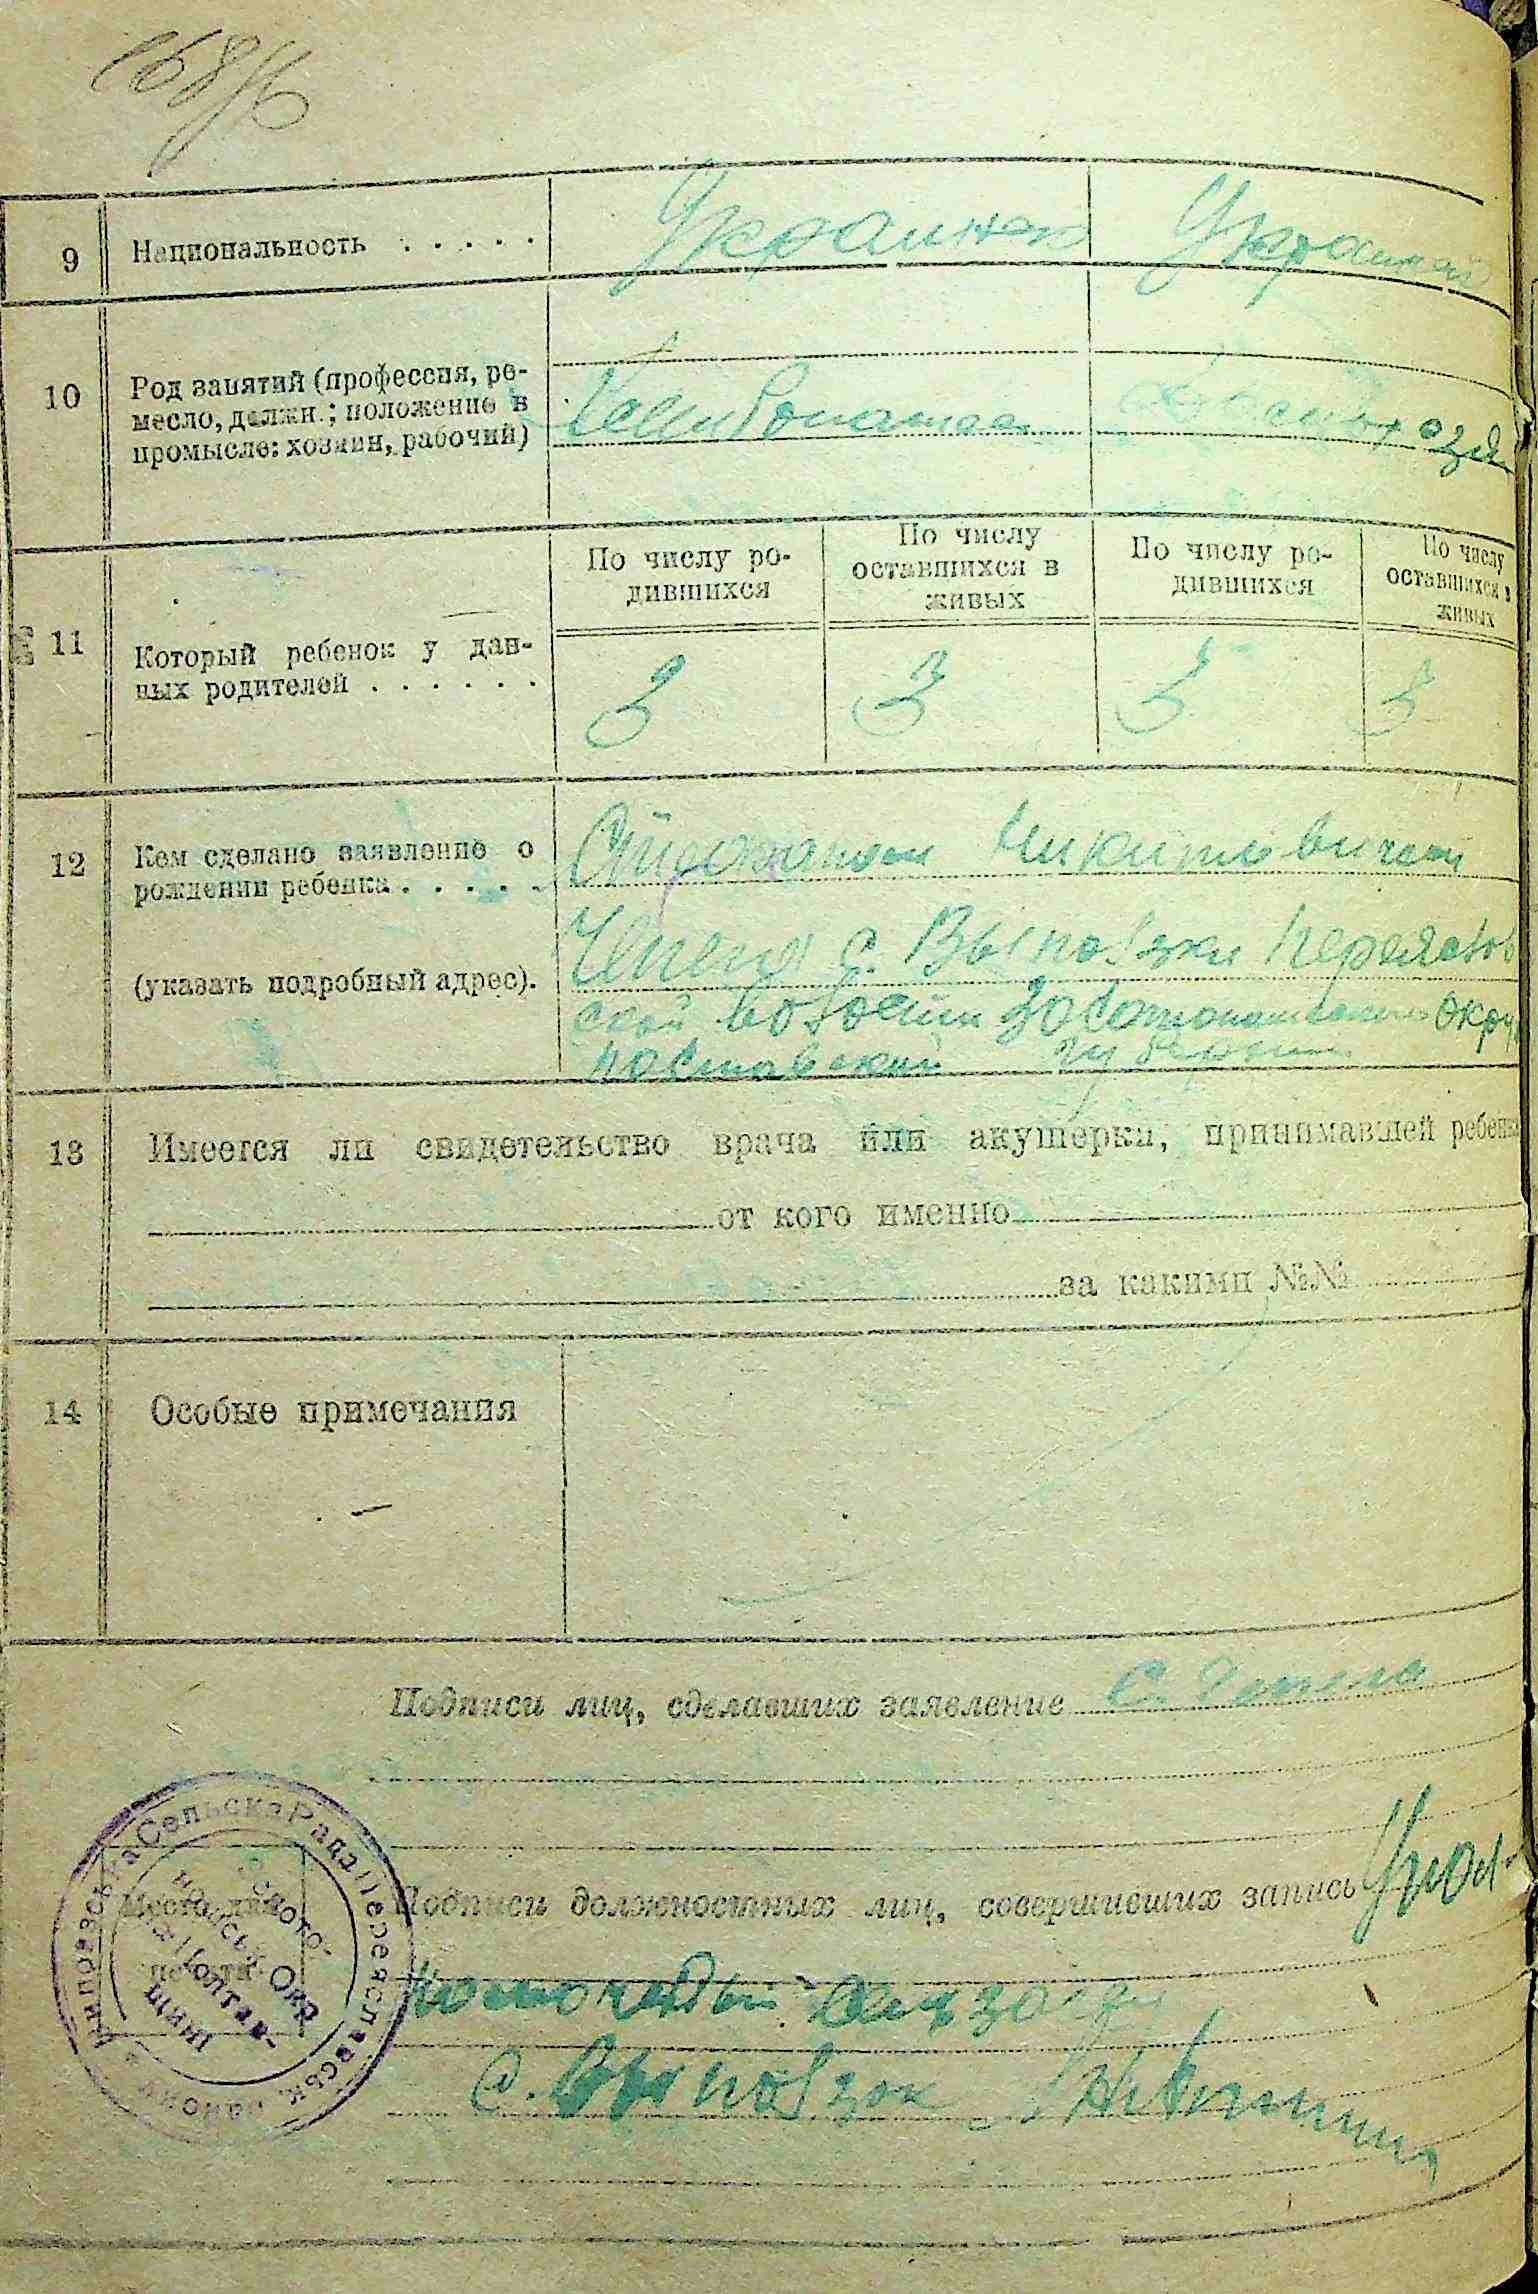 9 Национальность . . . . . Украинец Украинка
10 Род занятий (профессия, ре-
месло, должн.; положение в
промысле: хозяин, рабочий)
11 Который ребенок у дан-
ных родителей . . . . . .
По числу ро-
дившихся
По числу
оставшихся в
живых
По числу ро-
дившихся
По числу
оставшихся в
живых
3 3 3 3
12 Кем сделано заявление о
рождении ребенка . . . . .
(указать подробный адрес).
Степаном Никитовичем
с. Выповзки Переяслов
ской волости Золотоношского округ
полтавской губернии
13 Имеется ли свидетельство врача или акушерки, принимавшей ребенка
от кого именно
за какими №№
14 Особые примечания
Подписи лиц, сделавших заявление С.
Подписи должностных лиц, совершивших запись
с. Выповзок
Место для
печати
Виповзська Сельска Рада Переяславськ. району
Золото-
ніськ. Окр.
на Полтав-
щині